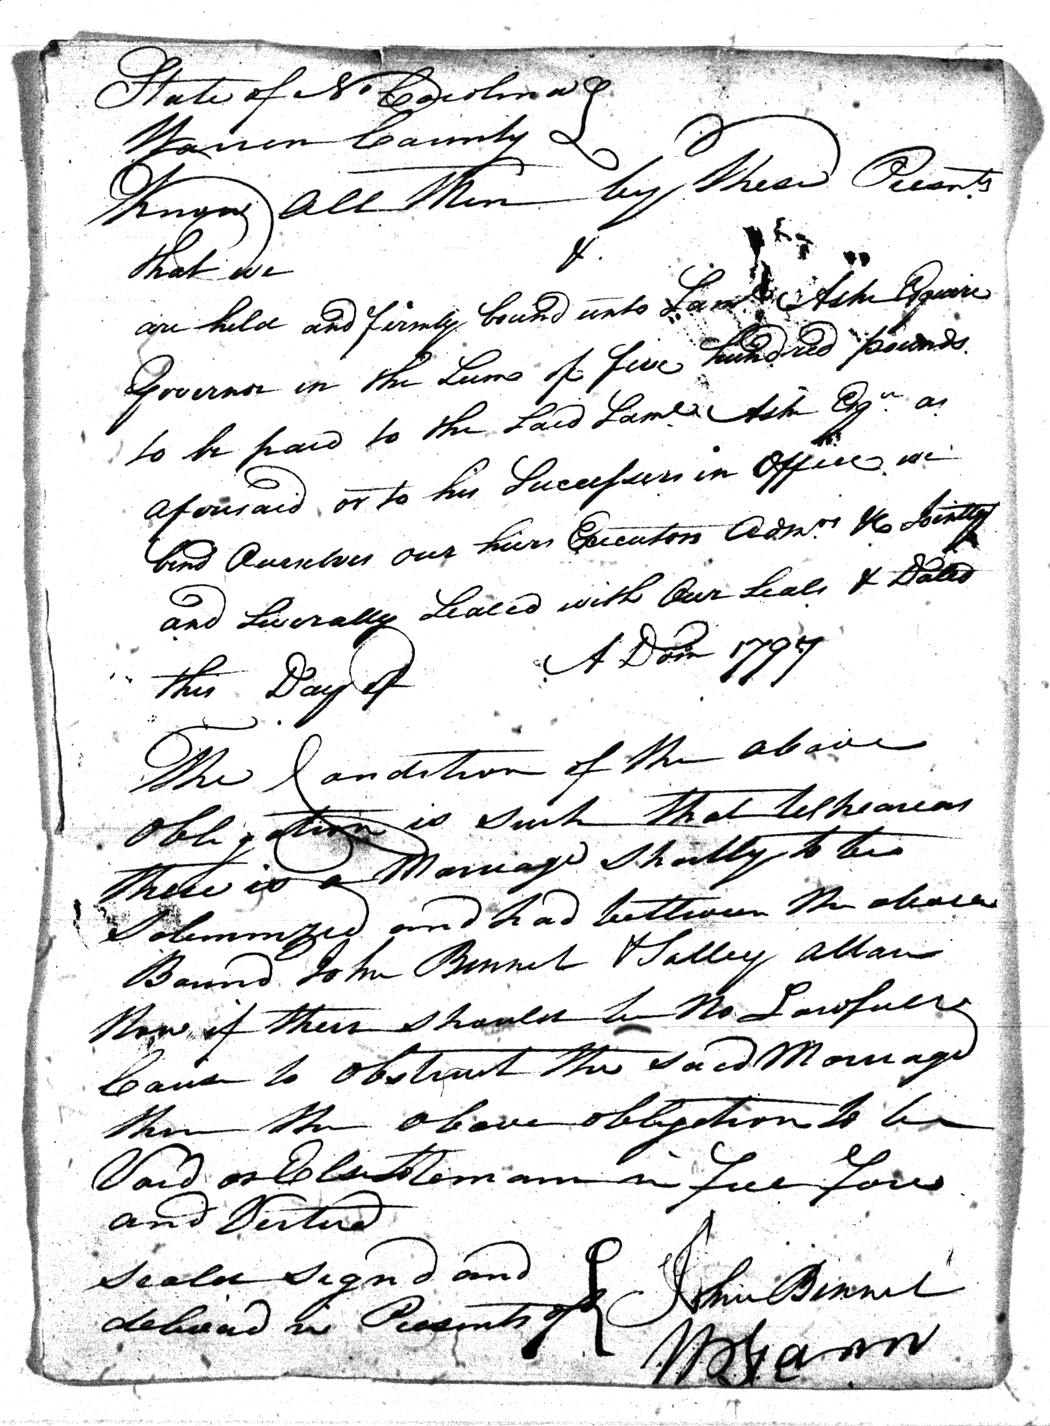 State of No Carolina
Warren County
Know all Men by these Presents
that we &
are held and firmly bound unto Saml Ashe Esquire
Governor in the Sum of five hundred pounds
to be paid to the said Saml Ashe Esqr as
aforesaid or to his Successors in Office we
bind Ourselves our heirs Executors Admrs &c Jointly
and Severally Sealed with Our Seals & Dated
this Day of A Dom 1797
The Condition of the above
obligation is such that Wheareas
there is a Marriage Shortly to be
Solemnized and had between the above
Bound John Bennet & Salley Allan
Now if there should be No Lawfull
Cause to obstruct the said Marriage
then the above obligation to be
Void or Else to Remain in full force
and Vertue
seald signd and
deliverd in Presents of John Bennet